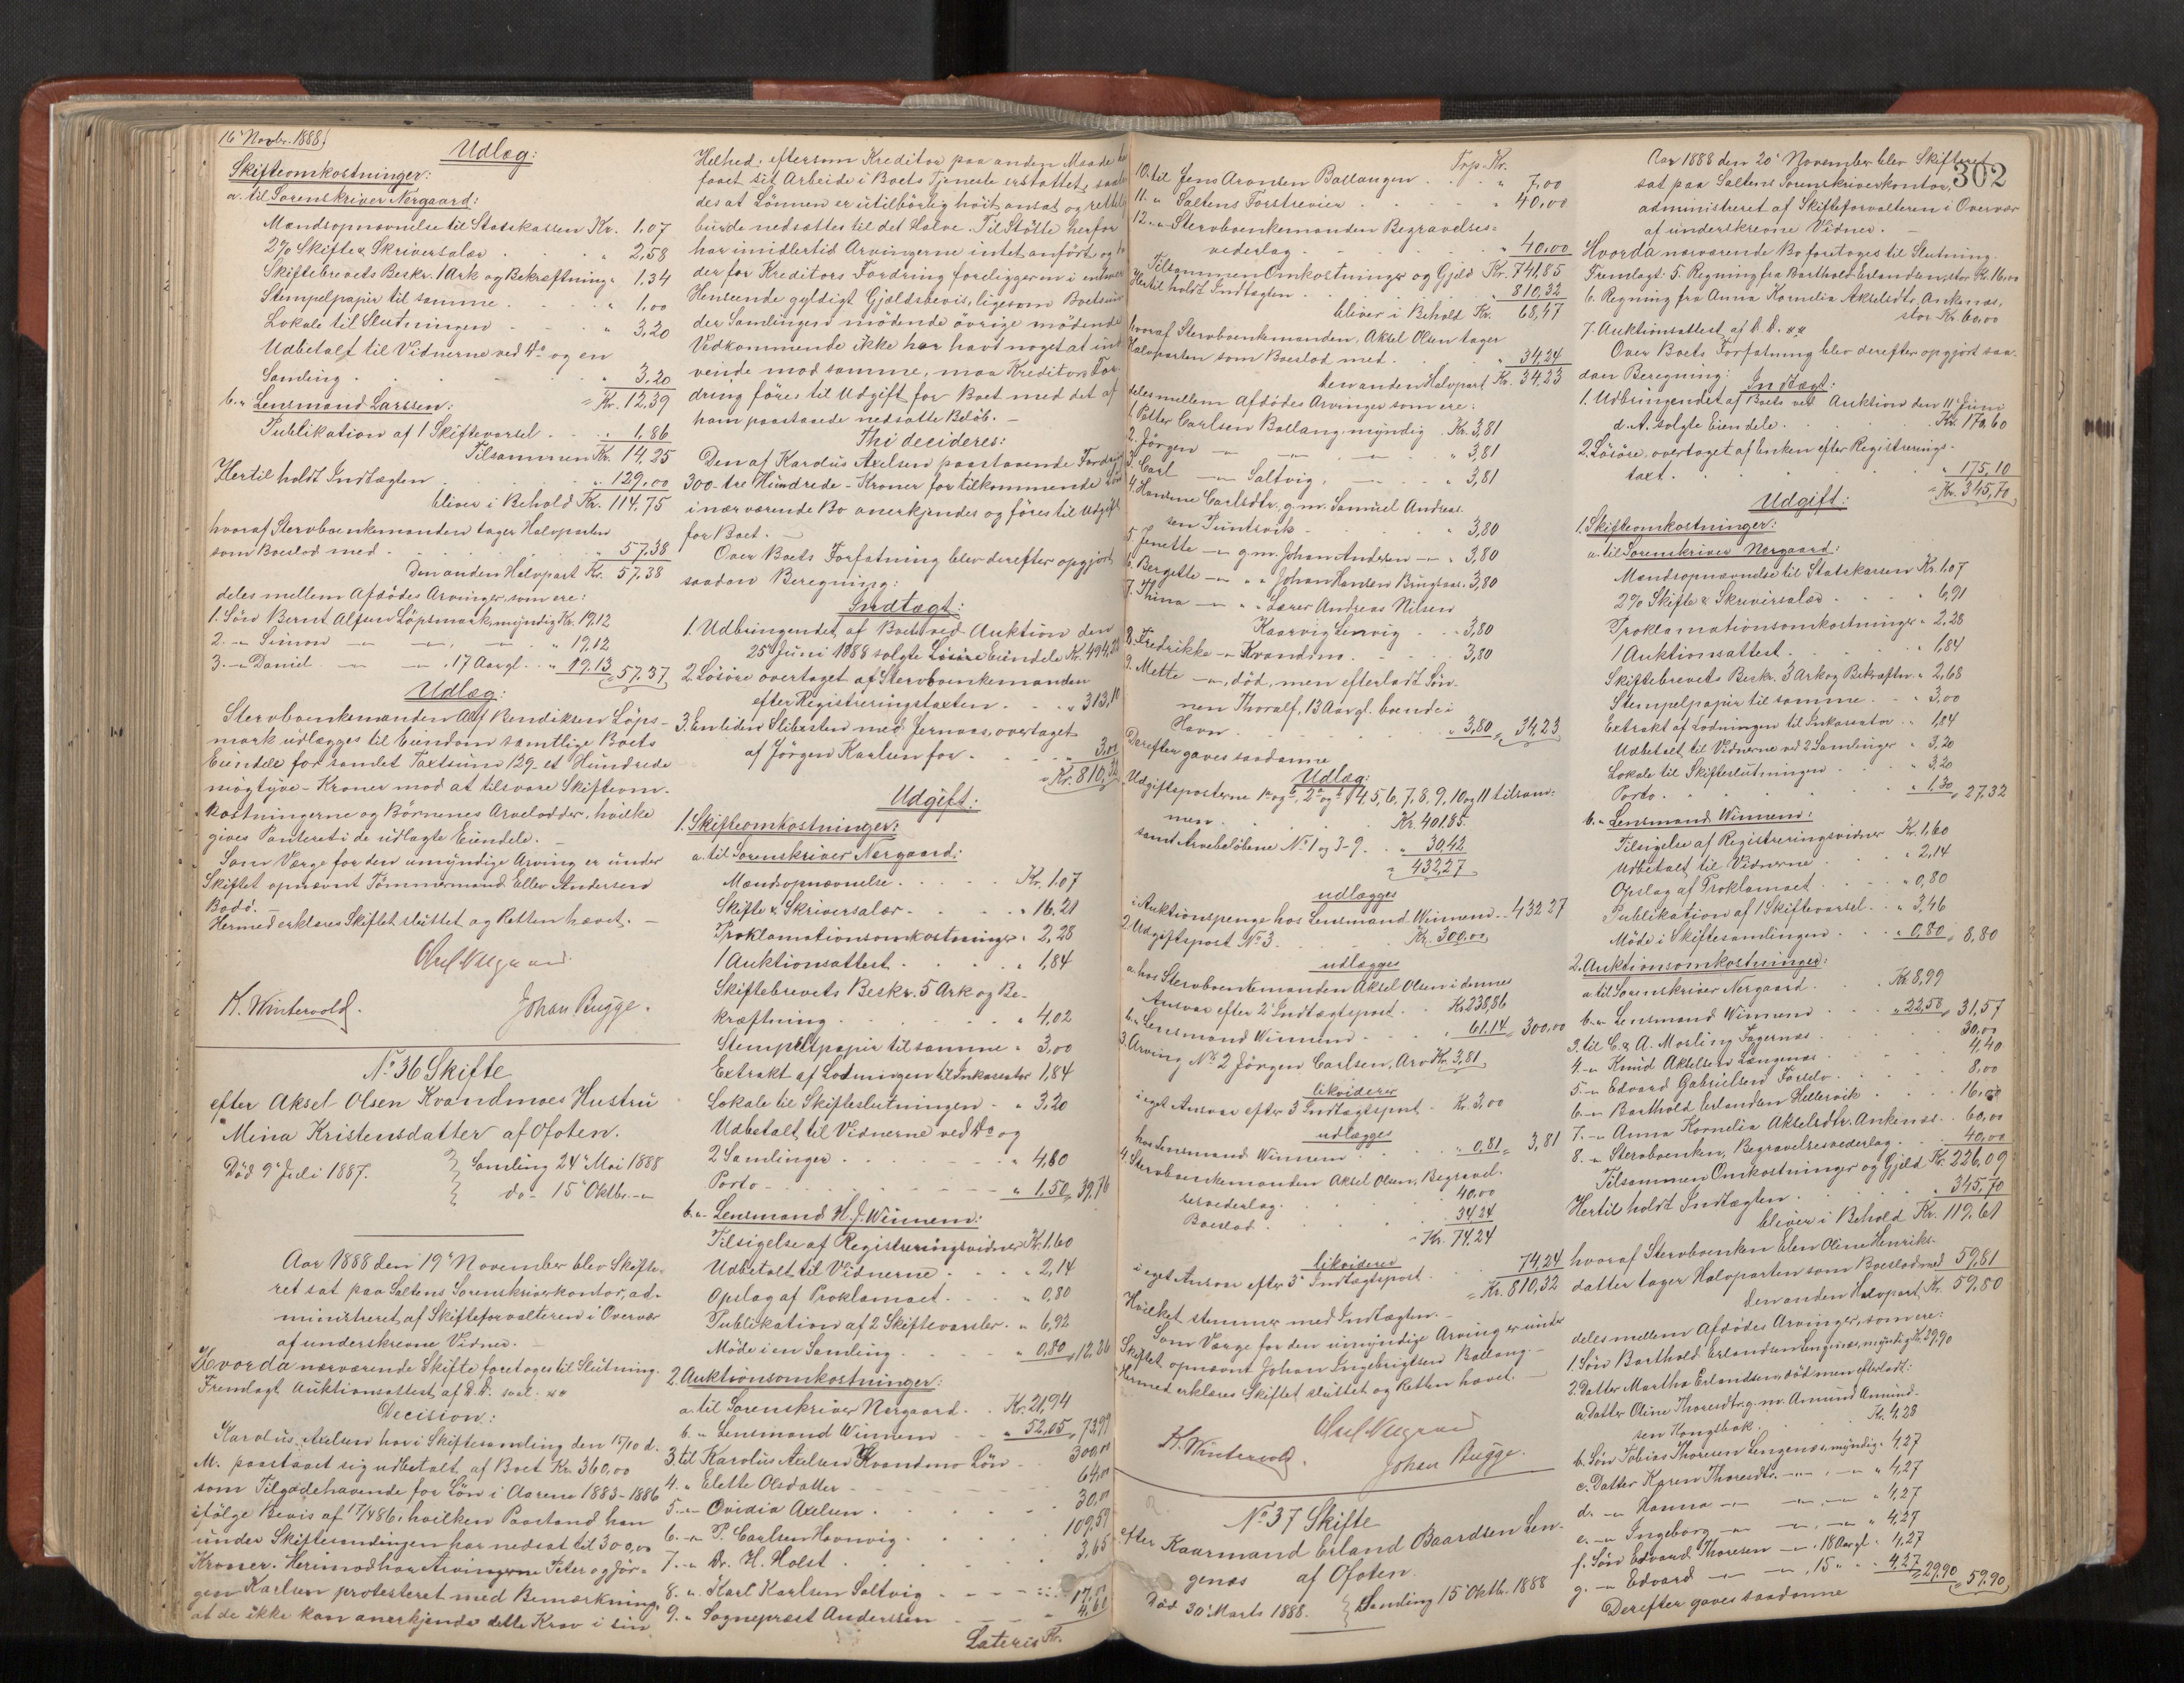 16' Novbr. 1888.
Udlæg:
Skifteomkostninger:
a. til Sorenskriver Nergaard:
Mandsopnævnelse til Statskassen Kr. 1,07
2% Skifte & Skriversalær . . " 2,58
Skiftebrevets Beskr. 1 Ark og Bekræftning " 1,34
Stempelpapir til samme . . " 1,00
Lokale til Slutningen . . " 3,20
Udbetalt til Vidnerne ved Do og en
Samling . . " 3,20
= Kr. 12,39
b. " Lensmand Larssen:
Publikation af 1 Skiftevarsel . . " 1,86
Tilsammen Kr. 14,25
Hertil holdt Indtægten . . " 129,00
bliver i Behold Kr. 114,75
hvoraf Stervboenkemanden tager Halvparten
som Boeslod med . . " 57,38
Den anden Halvpart Kr. 57,38
deles mellem Afdødes Arvinger, som ere:
1. Søn Bernt Alfsen Löpsmark, myndig Kr. 19,12
2. " Simon — " — , — " 19,12
3. " Daniel — " — " . 17 Aar gl. . " 19,13 = 57,37
Udlæg:
Stervboenkemanden Alf Bendiksen Löps-
mark udlægges til Eiendom samtlige Boets
Eiendele for samlet Taxtsum 129 - et Hundrede
niogtyve - Kroner mod at tilsvare Skifteom-
kostningerne og Börnenes Arvelodder, hvilke
gives Panteret i de udlagte Eiendele. —
Som Værge for den umyndige Arving er under
Skiftet opnævnt Tömmermand Ellev Andersen
Bodö. —
Hermed erklæres Skiftet sluttet og Retten hævet. —
K. Wintervold. Johan Bugge.
No 36 Skifte
efter Aksel Olsen Kvandmoes Hustru
Mina Kristensdatter af Ofoten.
Död 9' Juli 1887. Samling 24' Mai 1888
do - 15' Oktbr. — "
Aar 1888 den 19' November blev Skifte-
ret sat paa Saltens Sorenskriverkontor, ad-
ministreret af Skifteforvalteren i Overvær
af underskrevne Vidner. —
Hvorda nærværende Skifte foretoges til Slutning.
Fremlagt Auktionsattest af D.D.
Decision:
Karolus Axelsen har i Skiftesamling den 15/10 d.
M. paastaaet sig udbetalt af Boet Kr. 360,00
som Tilgodehavende for Løn i Aarene 1883-1886
ifölge Bevis af 17/4 86, hvilken Paastand han
under Skiftesamlingen har nedsat til 300,00
Kroner. Herimod har Arvingerne Peter og Jör-
gen Karlsen protesteret med Bemærkning,
at de ikke kan anerkjende dette Krav i sin
Helhed, eftersom Kreditor paa anden Maade
faaet sit Arbeide i Boets Tjeneste erstattet,
des at Lönnen er utilbørlig høit ansat og
burde nedsættes til det Halve. Til Støtte herfor
har imidlertid Arvingerne intet anført og
der for Kreditors Fordring foreligger en i enhver
Henseende gyldigt Gjældsbevis, ligesom Boets
der Samlingen mødende øvrige mødende
Vedkommende ikke har havt noget at ind
vende mod samme, maa Kreditors For-
dring føres til Udgift for Boet med det af
ham paastaaede nedsatte Beløb. —
Thi decideres:
Den af Karolus Axelsen paastaaende Fordring
300 - tre Hundrede - Kroner for tilkommende Løn
i nærværende Bo anerkjendes og føres til Udgift
for Boet. —
Over Boets Forfatning blev derefter opgjort
saadan Beregning:
Indtægt:
1. Udbringendet af Boets ved Auktion den
25' Juni 1888 solgte Eiendele Kr. 494,22
2. Løsøre overtaget af Stervboenkemanden
efter Registreringstaxten . . " 313,10
3. En liden Slibesten med Jernaas, overtaget
af Jörgen Karlsen for . . " 3,00
= Kr. 810,32
Udgift:
1. Skifteomkostninger:
a. til Sorenskriver Nergaard:
Mandsopnævnelse . . Kr. 1,07
Skifte & Skriversalær . . " 16,21
Proklamationsomkostninger " 2,28
1 Auktionsattest . . " 1,84
Skiftebrevets Beskr. 5 Ark og Be-
kræftning . . " 4,02
Stempelpapir til samme " 3,00
Extrakt af Lodningen til Inkasator 1,84
Lokale til Skifteslutningen . " 3,20
Udbetalt til Vidnerne ved Do og
2 Samlinger . . " 4,80
Porto . . " 1,50 = 39,76
b. " Lensmand H. J. Winnem:
Tilsigelse af Registreringsvidner Kr. 1,60
Udbetalt til Vidnerne . . " 2,14
Opslag af Proklamaet . . " 0,80
Publikation af 2 Skiftevarsler . " 6,92
Møde i en Samling . . " 0,80 = 12,26
2. Auktionsomkostninger:
a. til Sorenskriver Nergaard . . Kr. 21,94
b. " Lensmand Winnem . . " 52,05 = 73,99
3. til Karolus Axelsen Kvandmo Løn . 300,00
4. " Elette Olsdatter . . 64,00
5. " Ovidia Axelsen . . 30,00
6. " P. Carlsen Havnvig . . 109,59
7. " Dr. H. Holst . . 3,65
8. " Karl Karlsen Saltvig . . 17,00
9. " Sognepræst Anderssen . . 4,60
Lateris Kr.
Trp. Kr.
10. til Jens Aronsen Ballangen . . " 7,00
11. " Saltens Forstrevier . . " 40,00
12. " Stervboenkemanden Begravelses-
vederlag . . " 40,00
Tilsammen Omkostninger og Gjæld Kr. 741,85
Hertil holdt Indtægten . . 810,32
bliver i Behold Kr. 68,47
hvoraf Stervboenkemanden, Aksel Olsen tager
Halvparten som Boeslod med . . " 34,24
den anden Halvpart Kr. 34,23
deles mellem Afdødes Arvinger som ere:
1. Petter Carlsen Ballang, myndig Kr. 3,81
2. Jörgen — " — " — , — " 3,81
3. Carl — " — Saltvig, — " 3,81
4. Hansine Carlsdtr. g. m. Samuel Andreas-
sen Puntsvik . . " 3,80
5. Jenette — " — g. m. Johan Andersen — " — " 3,80
6. Bergitte — " — " " Johan Hansen . 3,80
7. Thina — " — " " Lærer Andreas Nilsen
Kaarvig Lenvig . . " 3,80
8. Fredrikke — " — Kvandmo . . 3,80
9. Mette — " —, død, men efterladt Søn-
nen Thoralf, 13 Aar gl. boende i
Havn . . " 3,80 = 34,23
Derefter gaves saadanne
Udlæg:
Udgiftsposterne 1a og b, 2a og b, 4, 5, 6, 7, 8, 9, 10 og 11 tilsam-
men . . Kr. 401,85.
samt Arvebeløbene No 1 og 3-9 . . " 30,42
= 432,27
udlægges
i Auktionspenge hos Lensmand Winnem . . 432,27
2. Udgiftspost No 3. . . Kr. 300,00
udlægges
a. hos Stervboenkemanden Aksel Olsen i dennes
Ansvar efter 2' Indtægtspost . . Kr. 238,86
b. " Lensmand Winnem . . " 61,14 = 300,00
3. Arving No 2 Jörgen Carlsen, Arv Kr. 3,81
likviderer
i eget Ansvar efter 3' Indtægtspost . Kr. 3,00
udlægges
hos Lensmand Winnem . . " 0,81 = 3,81
4. Stervboenkemanden Aksel Olsen, Begravel-
sesvederlag . . 40,00
Boeslod . . 34,24
= Kr. 74,24
likviderer
i eget Ansvar efter 3' Indtægtspost . . 74,24
= Kr. 810,32
Hvilket stemmer med Indtægten. —
Som Værge for den umyndige Arving er under
Skiftet opnævnt Johan Ingebrigtsen Ballang. —
Hermed erklæres Skiftet sluttet og Retten hævet. —
K. Wintervold. Johan Bugge.
No 37 Skifte
efter Kaarmand Erland Baardsen Len-
genæs af Ofoten.
Død 30' Marts 1888. Samling 15' Oktbr. 1888
302
Aar 1888 den 20' November blev Skifteret
sat paa Saltens Sorenskriverkontor,
administreret af Skifteforvalteren i Overvær
af underskrevne Vidner. —
Hvorda nærværende Bo foretoges til Slutning.
Fremlagt: 5. Regning fra Barthold Erlandsen, stor Kr. 16,00
6. Regning fra Anna Kornelia Akselsdtr. Ankenæs,
stor Kr. 60,00
7. Auktionsattest af D.D.
Over Boets Forfatning blev derefter opgjort saa-
dan Beregning:
Indtægt:
1. Udbringendet af Boets ved Auktion den 11' Juni
d. A. solgte Eiendele . . Kr. 170,60
2. Løsøre, overtaget af Enken efter Registrerings-
taxt . . " 175,10
= Kr. 345,70
Udgift:
1. Skifteomkostninger:
a. til Sorenskriver Nergaard:
Mandsopnævnelse til Statskassen Kr. 1,07
2% Skifte & Skriversalær . . " 6,91
Proklamationsomkostninger " 2,28
1 Auktionsattest . . " 1,84
Skiftebrevets Beskr. 3 Ark og Bekræftn. " 2,68
Stempelpapir til samme . . " 3,00
Extrakt af Lodningen til Inkasator . " 1,84
Udbetalt til Vidnerne ved 2 Samlinger " 3,20
Lokale til Skifteslutningen . . " 3,20
Porto . . " 1,30 = 27,32
b. " Lensmand Winnem:
Tilsigelse af Registreringsvidner Kr. 1,60
Udbetalt til Vidnerne . . " 2,14
Opslag af Proklamaet . . " 0,80
Publikation af 1 Skiftevarsel . . " 3,46
Møde i Skiftesamlingen . . " 0,80 = 8,80
2. Auktionsomkostninger:
a. til Sorenskriver Nergaard . . Kr. 8,99
b. " Lensmand Winnem . . " 22,58 = 31,57
3. til C. & A. Mosling Fagernæs . . 30,00
4. " Knud Akselsen Langenæs . . 4,40
5. " Edvard Gabrielsen Forselv . . 8,00
6. " Barthold Erlandsen Hellervik . . 16,00
7. " Anna Kornelia Akselsdtr. Ankenæs . . 60,00
8. " Stervboenken, Begravelsesvederlag . . 40,00
Tilsammen Omkostninger og Gjæld Kr. 226,09
Hertil holdt Indtægten . . " 345,70
bliver i Behold Kr. 119,61
hvoraf Stervboenken Elen Oline Henriks-
datter tager Halvparten som Boeslod med 59,81
den anden Halvpart Kr. 59,80
deles mellem Afdødes Arvinger, som ere:
1. Søn Barthold Erlandsen Lengenæs, myndig Kr. 29,90
2. Datter Martha Erlandsen, død men efterladt:
a. Datter Oline Thoresdtr. g. m. Amund Amund-
sen Kongsbak . . Kr. 4,28
b. Søn Tobias Thoresen Lengenæs, myndig " 4,27
c. Datter Karen Thoresdtr. — " — , — " " 4,27
d. — " Hanna — " — " — , — " " 4,27
e. — " Ingeborg — " — " — , — " " 4,27
f. Søn Edvard Thoresen — " . 18 Aar gl. " 4,27
g. — " Edvard — " — " , 15 " " " 4,27 = 29,90 = 59,90
Derefter gaves saadanne